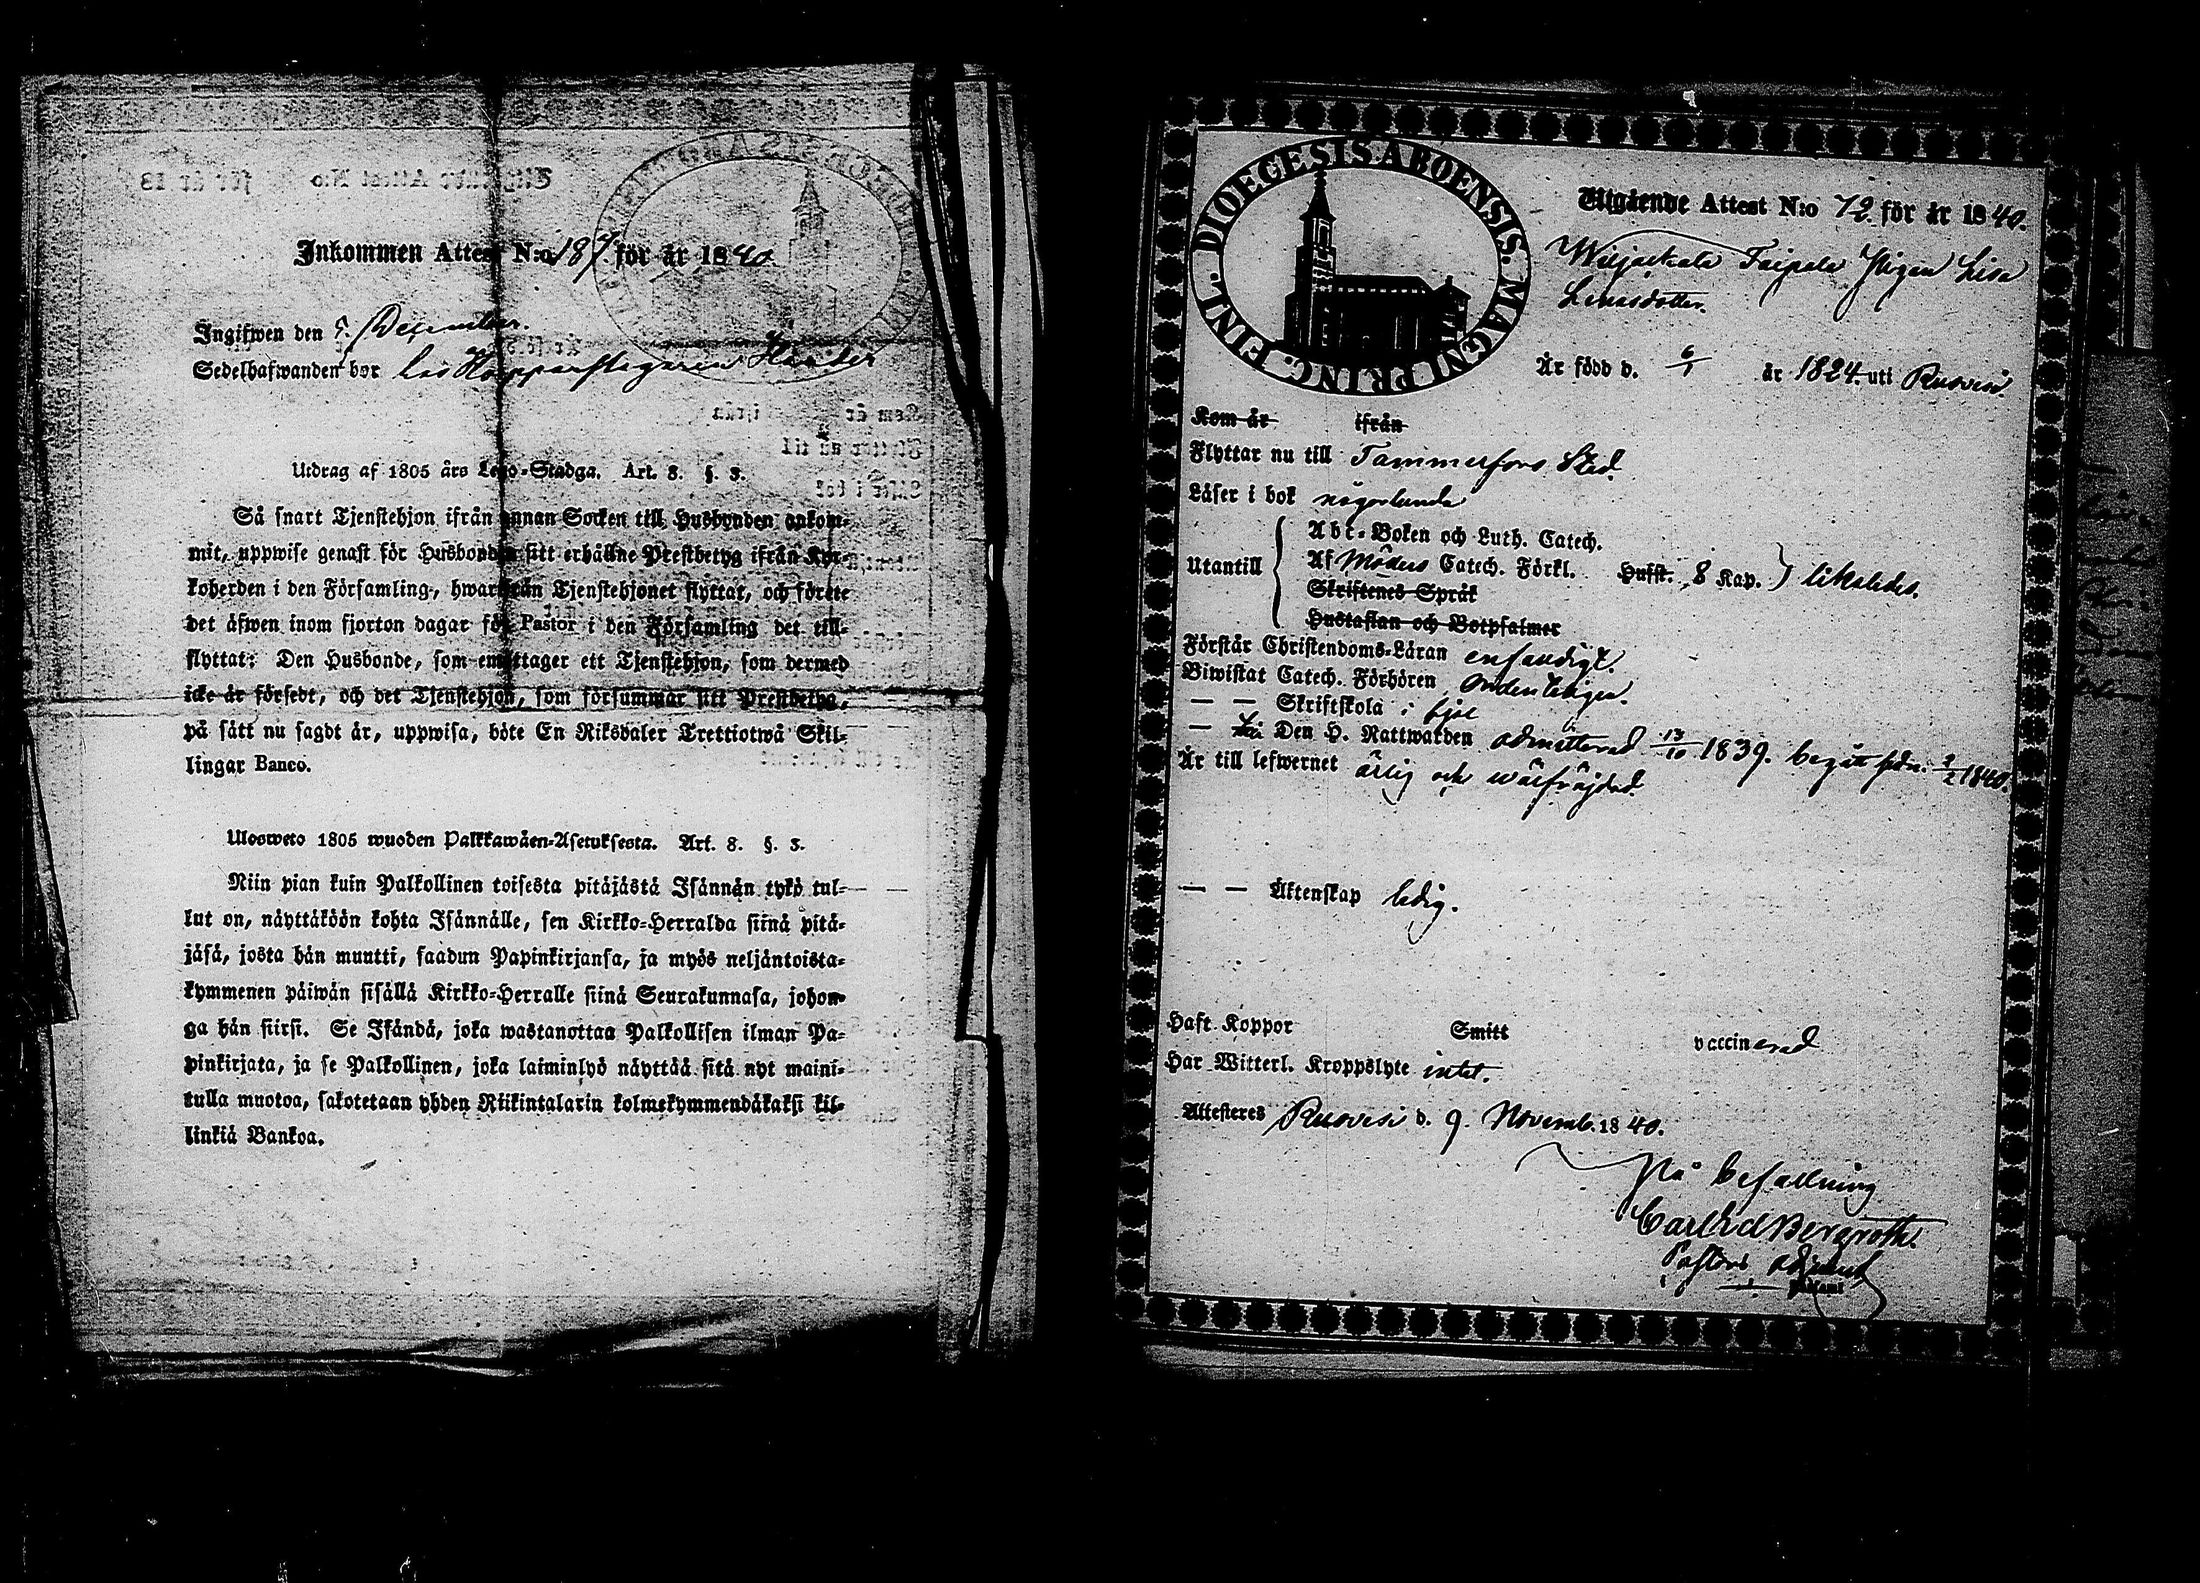 Inkommen Attest N:o 187. för år 1840.
Ingifwen den 5. December.
Sedelhafwanden bor hos Kopparslagaren
Utdrag af 1805 års Lego-Stadga. Art. 8. §. 3.
Så snart Tjenstehjon ifrån annan Socken till Husbonden ankom-
mit, uppwise genast för Husbonden sitt erhållne Prestbetyg ifrån Kyr-
koherden i den Församling, hwarifrån Tjenstehjonet flyttat, och förete
det äfwen inom fjorton dagar för Pastor i den Församling det till-
flyttat: Den Husbonde, som emottager ett Tjenstehjon, som dermed
icke är försedt, och det Tjenstehjon, som försummar sitt Prestbetyg,
på sätt nu sagdt är, uppwisa, böte En Riksdaler Trettiotwå Skil-
lingar Banco.
Ulosweto 1805 wuoden Palkkawäen-Asetuksesta. Art. 8. §. 3.
Niin pian kuin Palkollinen toisesta pitäjästä Isännän tykö tul-
lut on, näyttäköön kohta Isännälle, sen Kirkko-Herralda siinä pitä-
jäsä, josta hän muutti, saadun Papinkirjansa, ja myös neljäntoista-
kymmenen päiwän sisällä Kirkko-Herralle siinä Seurakunnasa, johon-
ga hän siirsi. Se Isändä, joka wastanottaa Palkollisen ilman Pa-
pinkirjata, ja se Palkollinen, joka laiminlyö näyttää sitä nyt maini-
tulla muotoa, sakotetaan yhden Riikintalarin kolmekymmendäkaksi kil-
linkiä Bankoa.
DIOECESIS ABOENSIS. MAGNI PRINC. FINL.
Utgående Attest N:o 72 för år 1840.
Wiljakkala Taipale Pigan Lisa
Linusdotter.
Är född d. 6/1 år 1824. uti Ruovesi.
Kom år ifrån
Flyttar nu till Tammerfors Stad.
Läser i bok någorlunda
Utantill
Abc-Boken och Luth. Catech.
Af Möders Catech. Förkl. Husst. 8 Kap. } likaledes.
Skriftenes Språk
Hustaflan och Botpsalmer
Förstår Christendoms-Läran enfaldigt.
Biwistat Catech. Förhören ordenteligen.
— — Skriftskola i fjol
— Till Den H. Nattwarden admitterad 13/10 1839. begått sedn. 2/2 1840.
Är till lefwernet ärlig och wälfräjdad.
— — Äktenskap ledig.
Haft Koppor Smitt vaccinerad
Har Witterl. Kroppslyte intet.
Attesteres Ruovesi d. 9. Novemb. 1840.
På befallning
Carl Bergroth.
Pastors adjunct